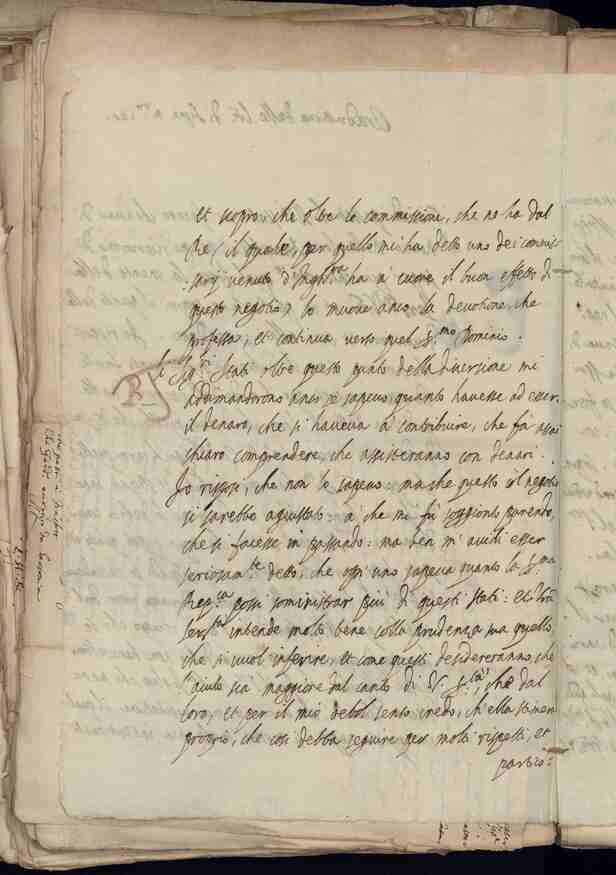 et scopro, che oltre le commissioni, che ne ha dal
Re (il quale, per quello mi ha detto uno dei commis-
sarij venuto d'Ingh.ra ha à cuore il buon effetto di
questo negotio) lo muove anco la devotione, che
professa, et continua verso quel S.mo Dominio.
Li Sig.ri Stati oltre questo punto della diversione mi
addimandorono anco se sapevo quanto havesse ad esser
il denaro, che si haveva à contribuire, che fà assai
chiaro comprendere, che assisteranno con denari.
Io risposi, che non lo sapevo: ma che questo il negotio
si sarebbe agiustato: à che mi fù soggionto
che si facesse in passando: ma ben m'avidi esser
seriosam.te detto, che ogn'uno sapeva quanto la S.ma
Rep.ca possi somministrar più di questi Stati: et
Ser.tà intende molto bene colla prudenza sua quello,
che si vuol inferire, et come questi desidereranno che
l'aiuto sia maggiore dal canto di V. S.tà, che dal
loro, et per il mio debol senso credo, ch'ella
proprio, che così debba seguire per molti rispetti, et
partico:
B